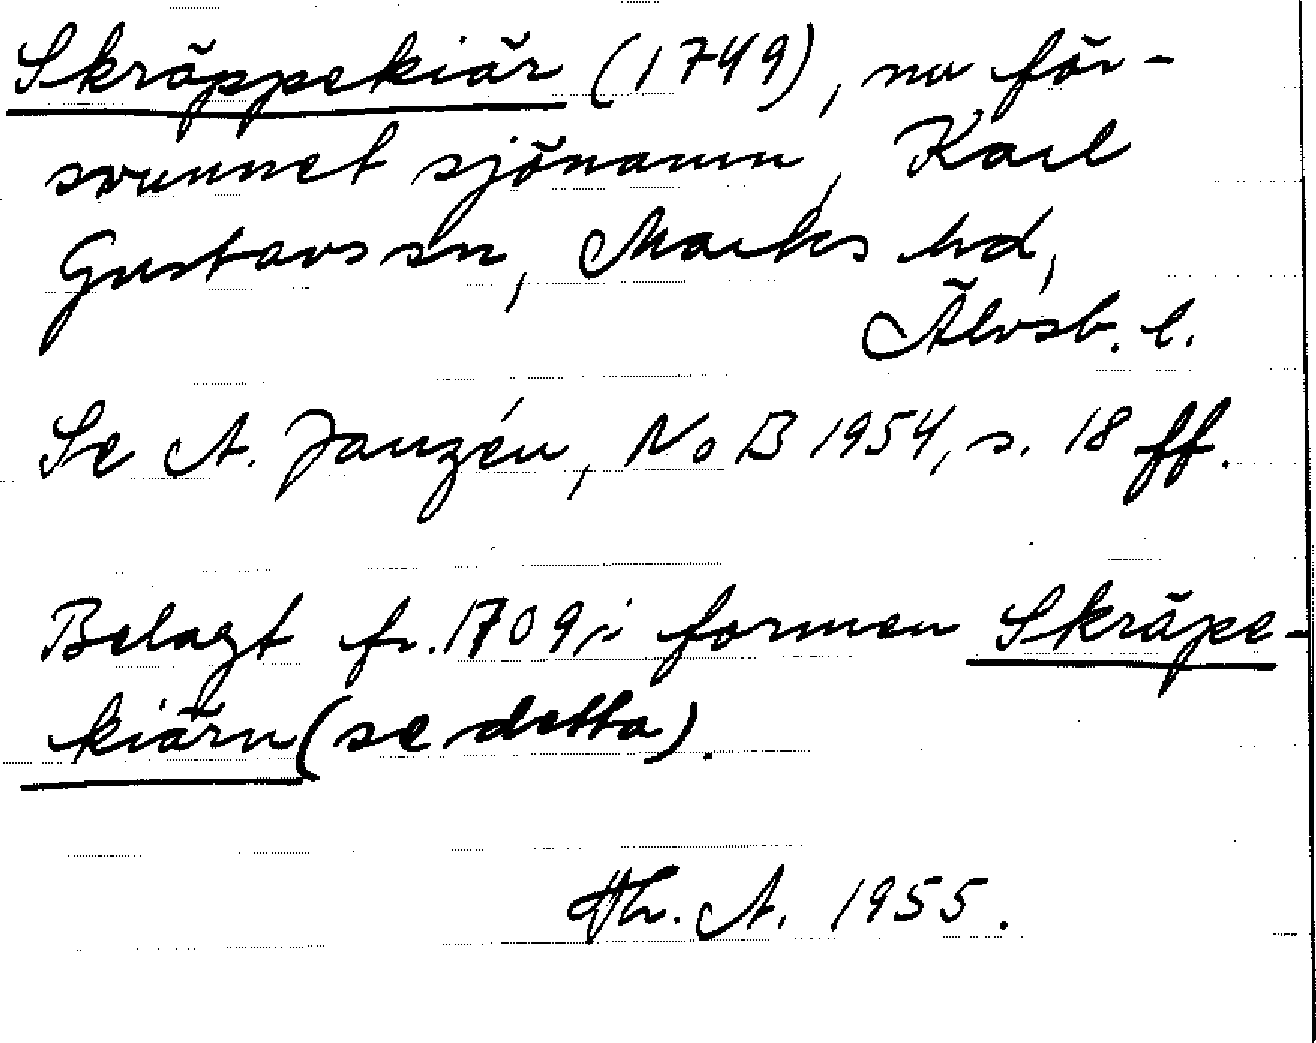 Skräppekiär (1749), nu för-
svunnet sjönamn, Karl
Gustavs sn, Marks hd,
Älvsb. l.
Se A. Janzén, NoB 1954, s. 18 ff.
Belagt fr. 1709 i formen Skräpe-
kiärn (se detta).
Th. A. 1955.